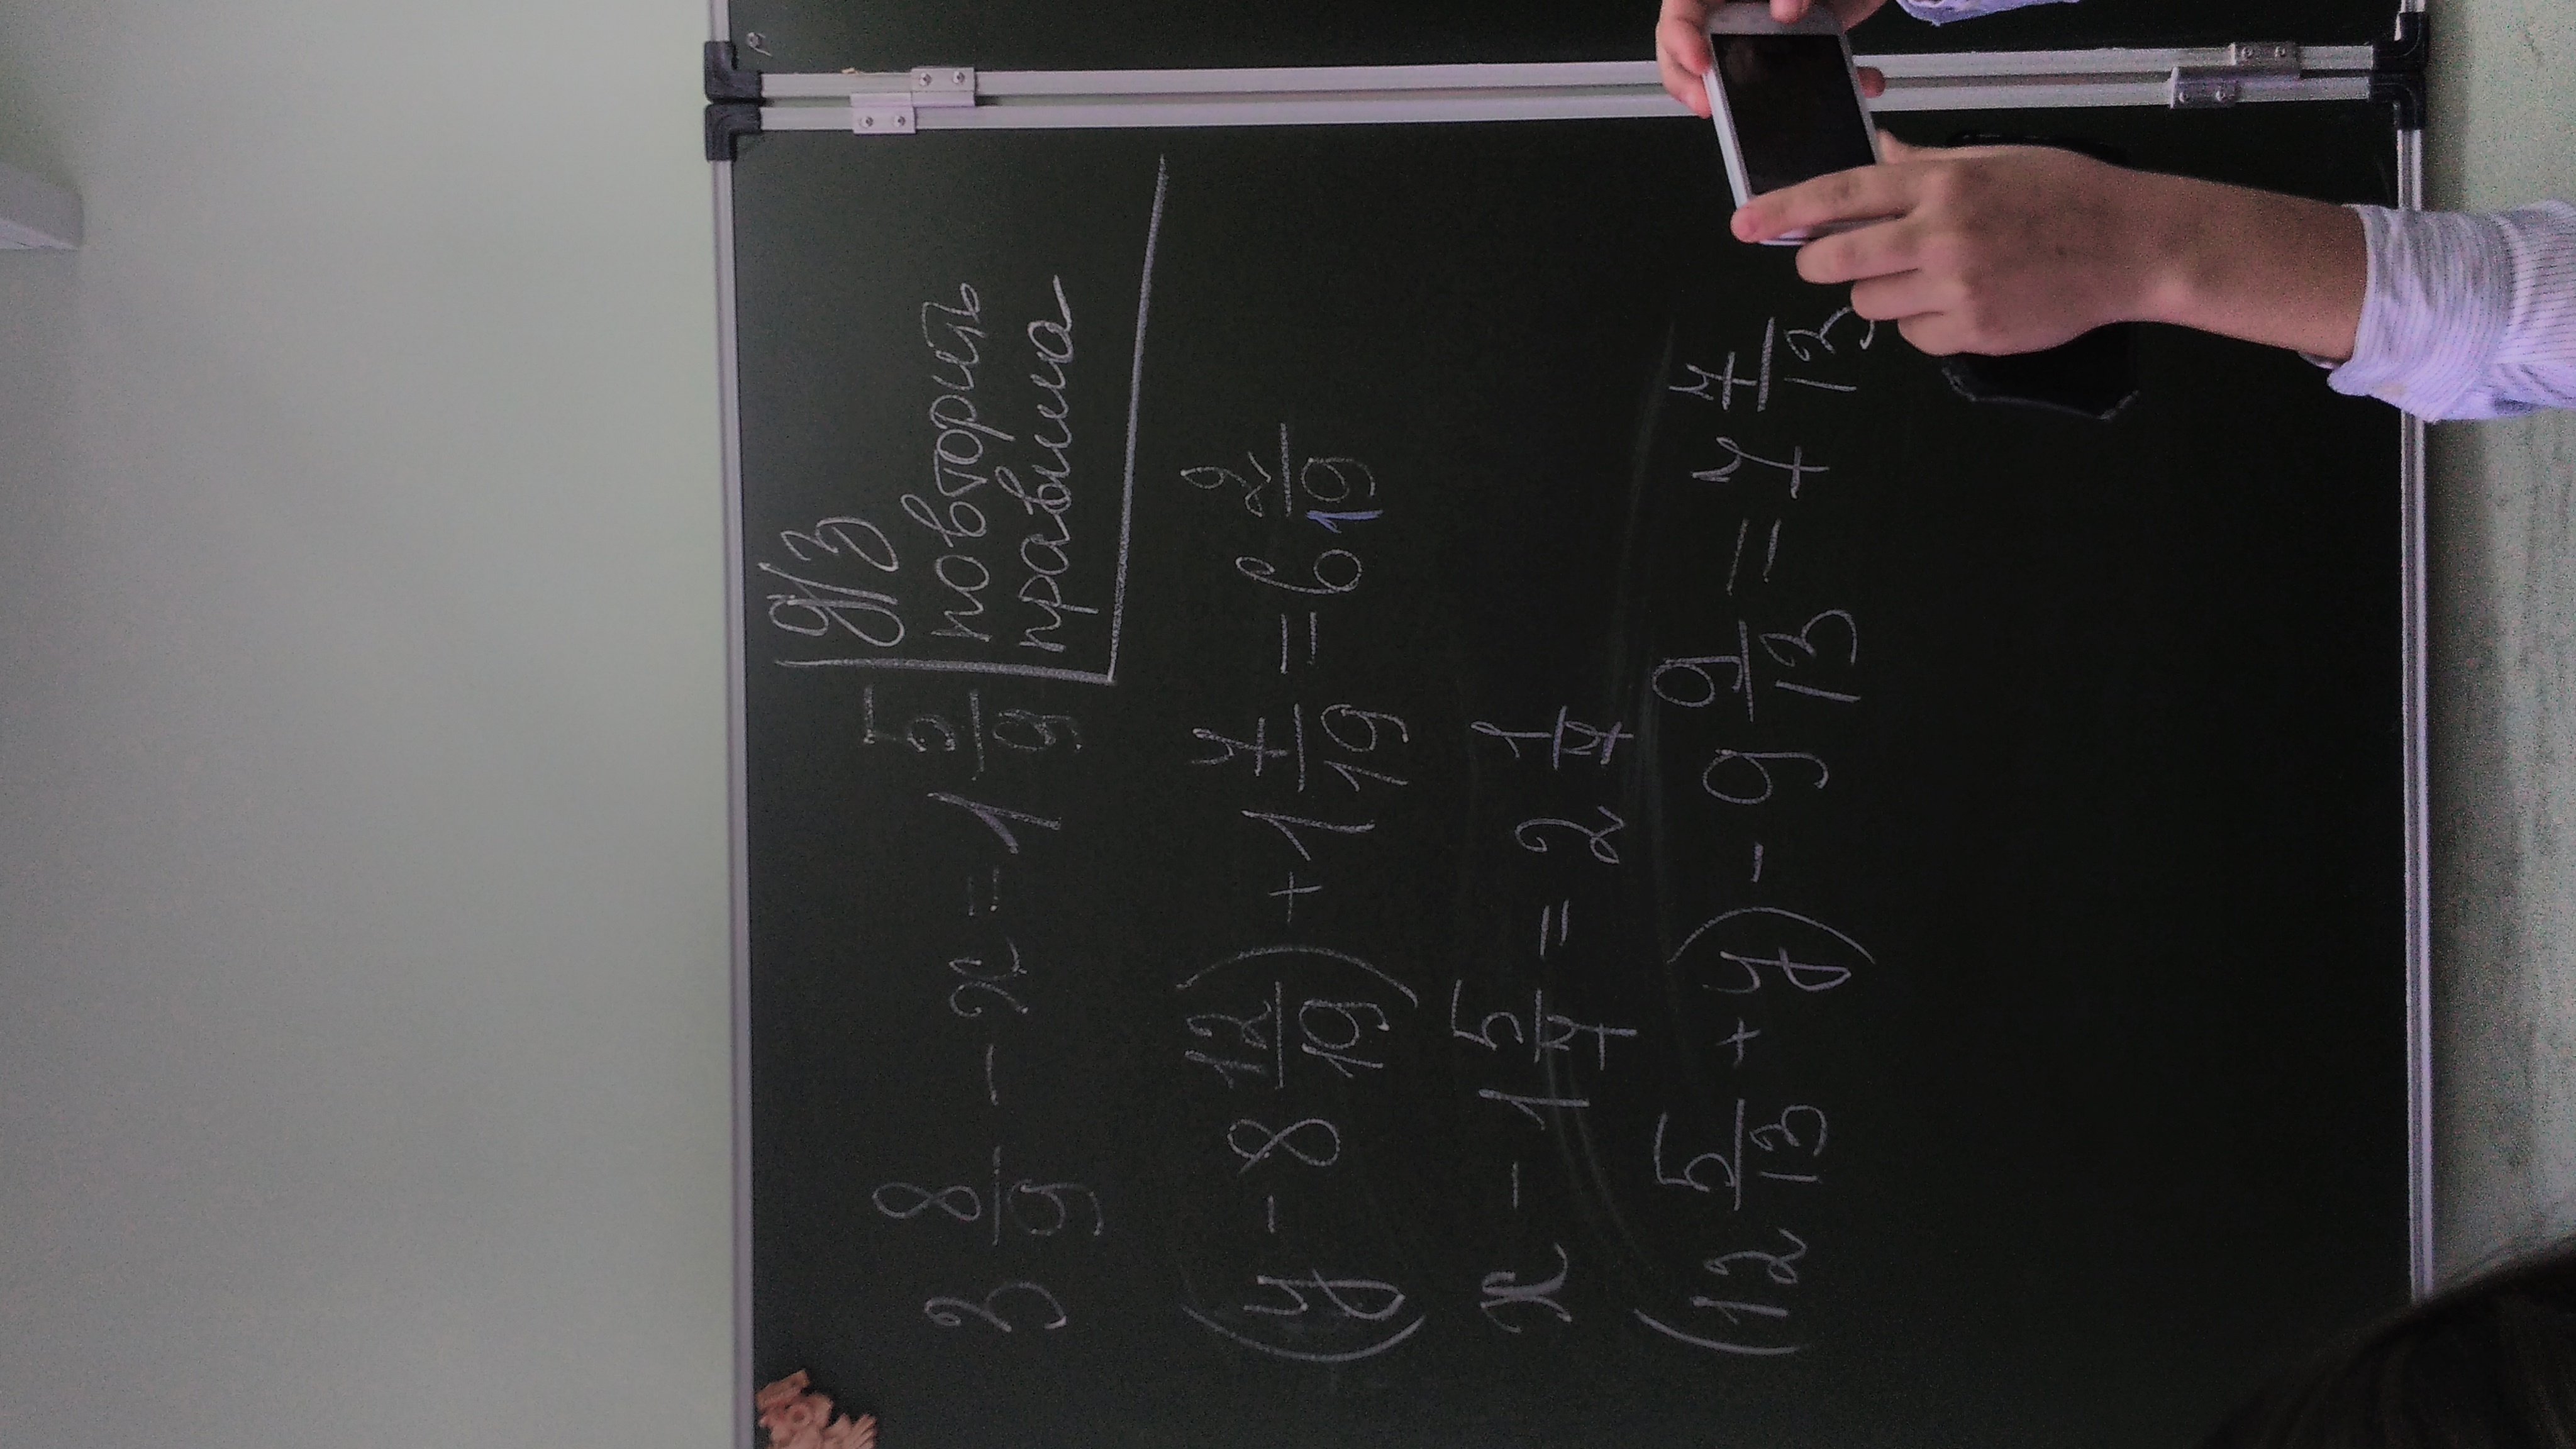 д/з
повторить
правила
3 8/9 - x = 1 5/9
(y - 8 12/19) + 1 7/19 = 6 2/19
x - 1 5/7 = 2 1/7
(12 5/13 + y) - 9 9/13 = 7 7/13